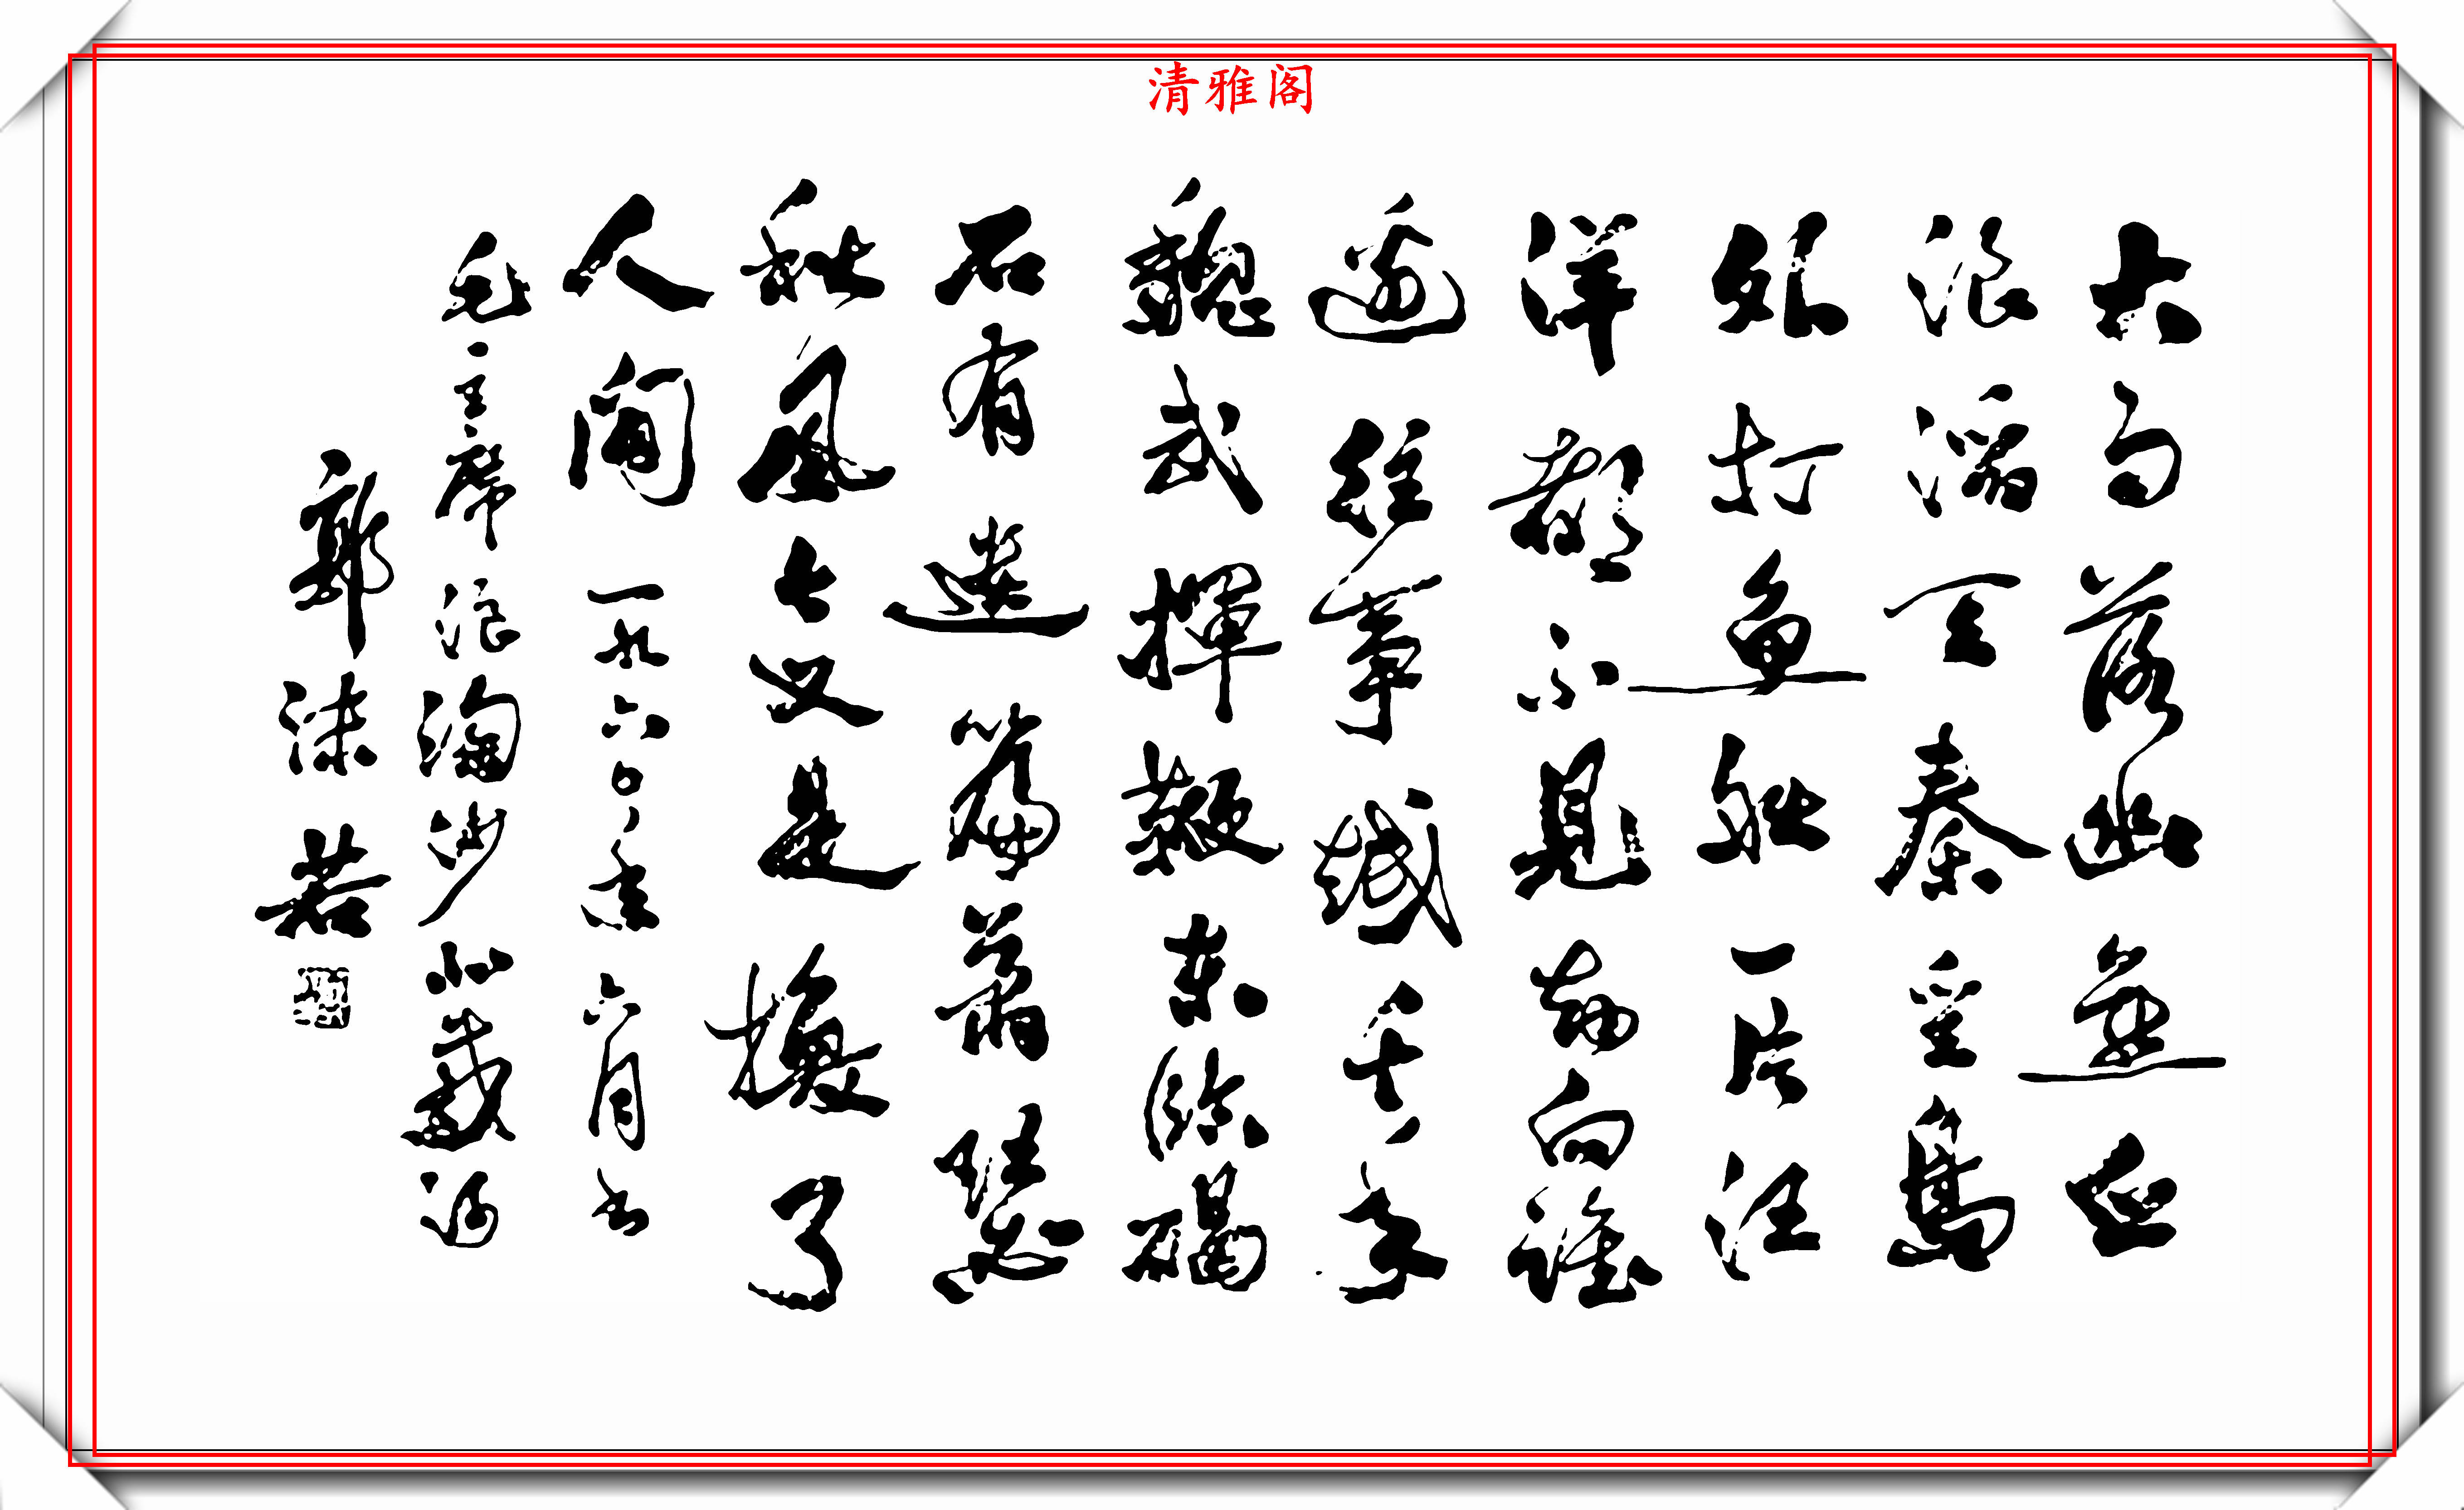 清雅阁
大雨落幽燕白
浪滔天秦皇岛
外打鱼船一片汪
洋都不见知向谁
边往事越千年
魏武挥鞭东临碣
石有遗篇萧瑟
秋风今又是换了
人间 一九六〇年六月书
毛主席浪淘沙北戴河
郭沫若